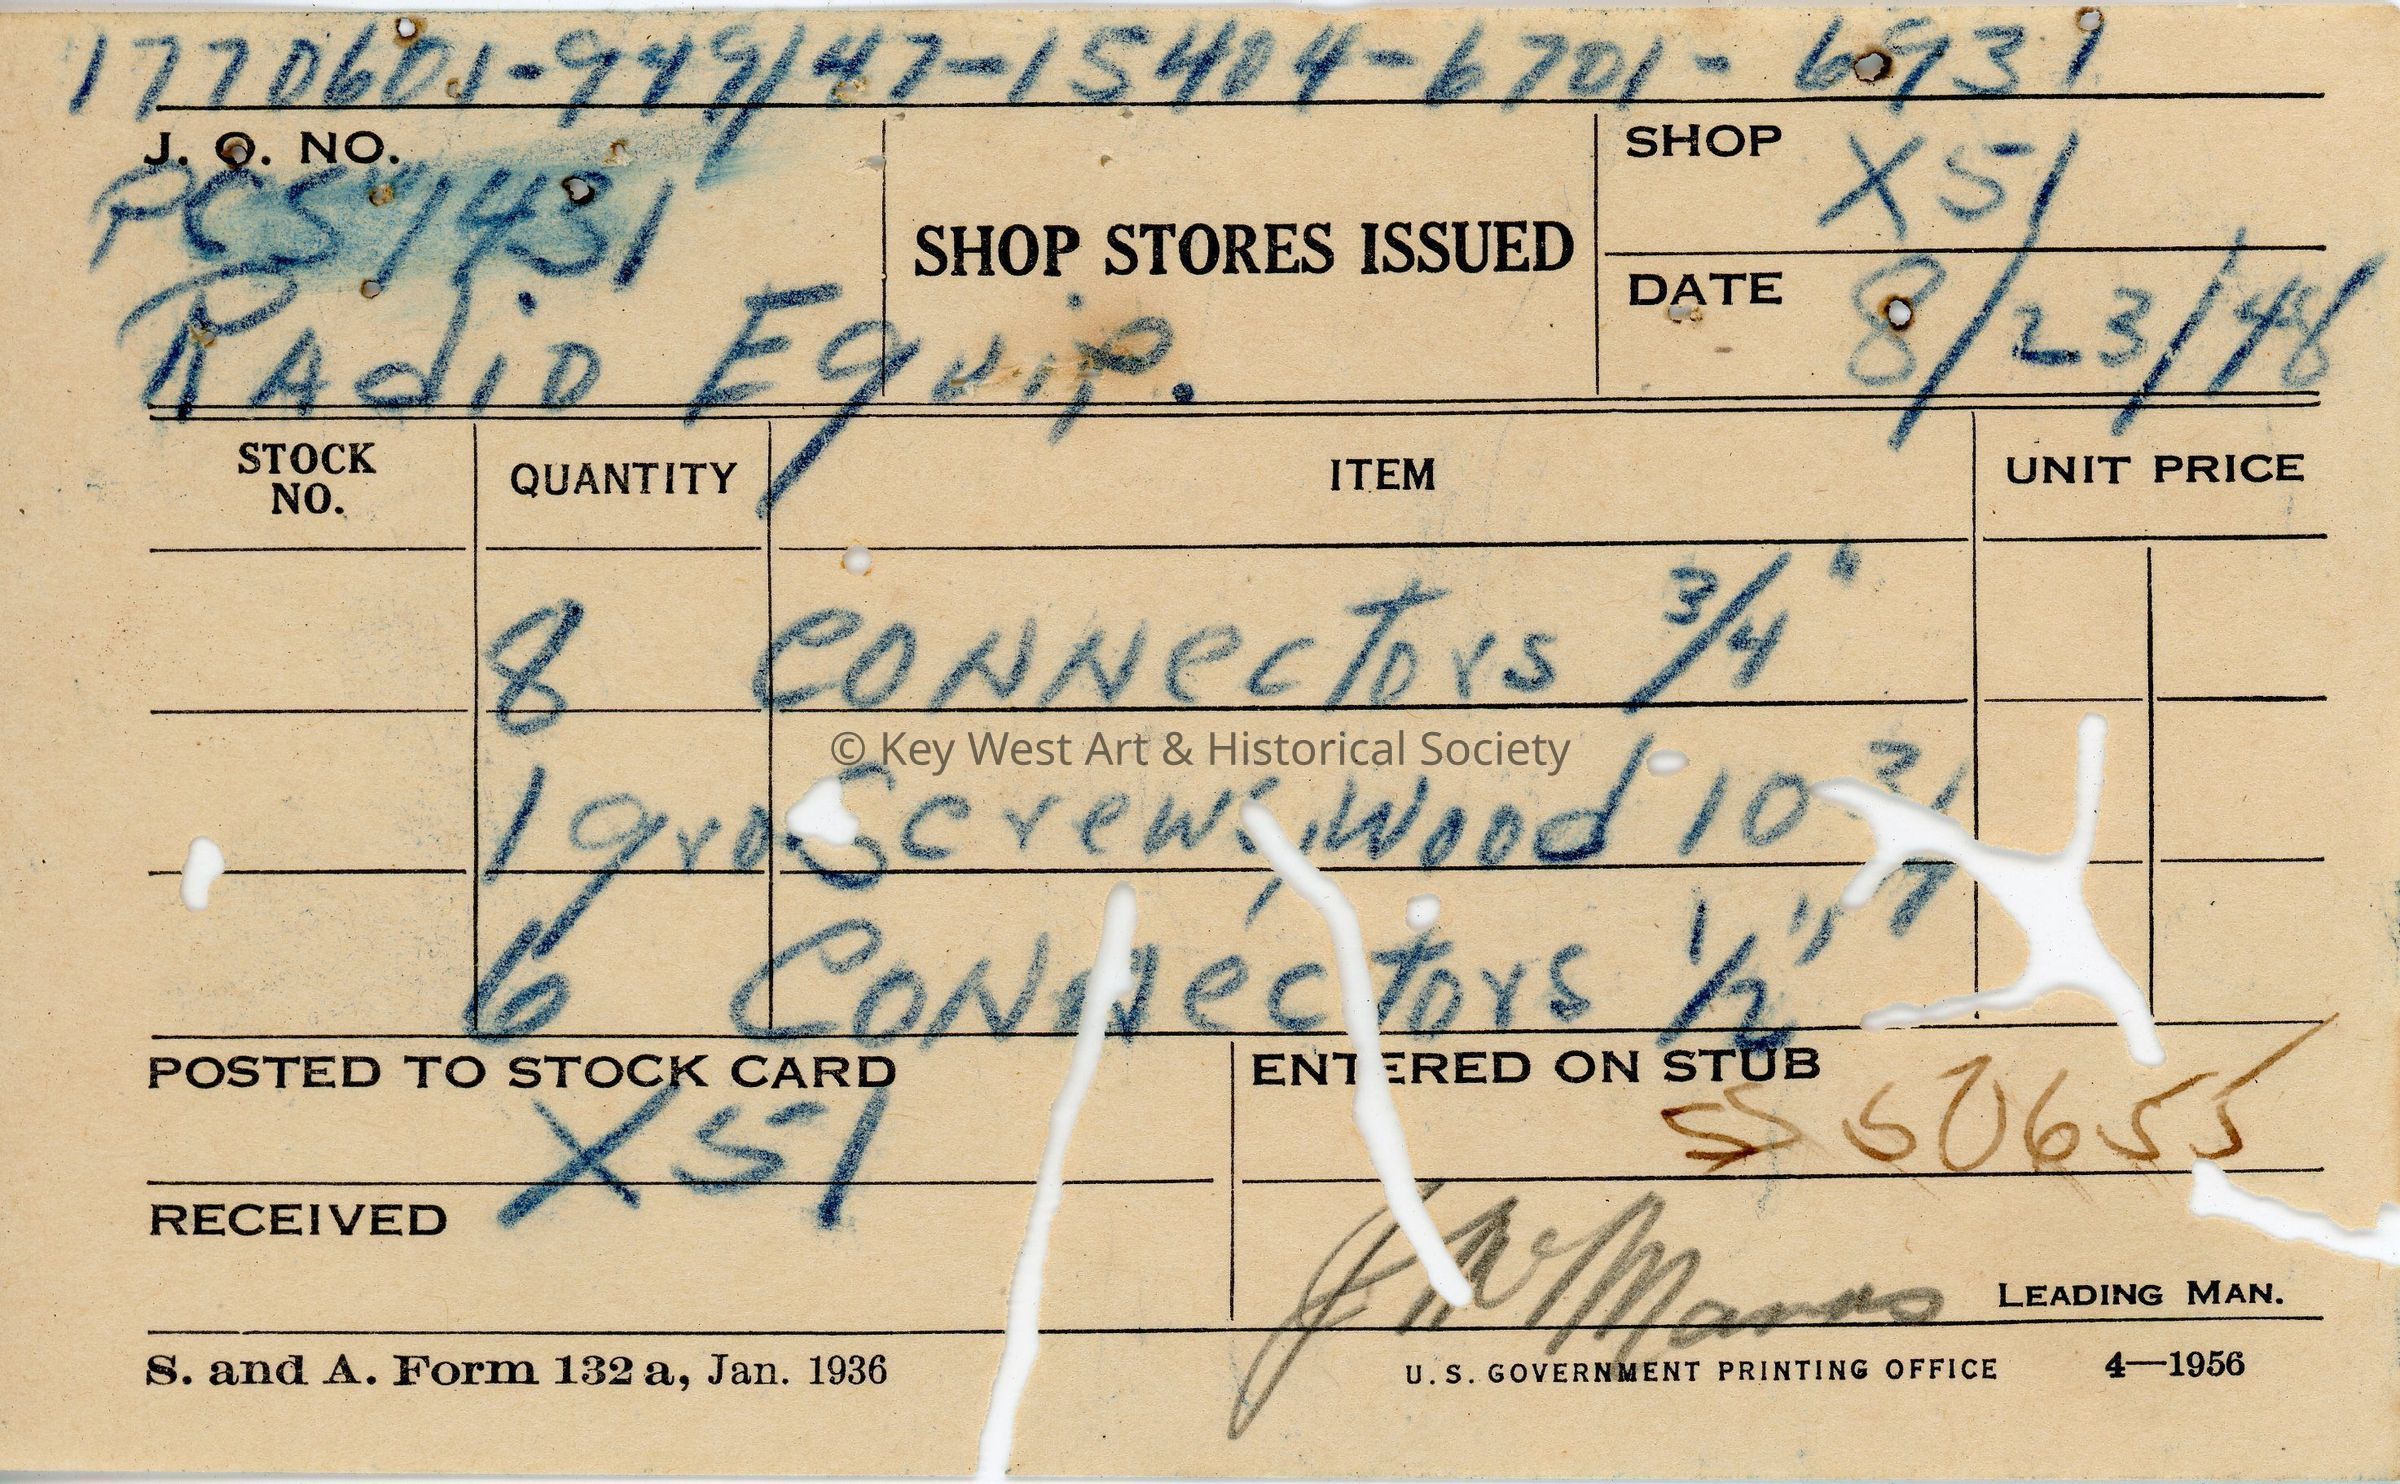 1770601-949/47-15404-6701- 6931
J. O. NO.
SHOP X51
PCS 1431
SHOP STORES ISSUED
DATE 8/23/48
Radio Equip.
STOCK NO.
QUANTITY
ITEM
UNIT PRICE
8 Connectors 3/4"
© Key West Art & Historical Society
1 gro Screws, Wood 10
6 Connectors 1/2"
POSTED TO STOCK CARD
ENTERED ON STUB
X51
50655
RECEIVED
LEADING MAN.
S. and A. Form 132 a, Jan. 1936
U. S. GOVERNMENT PRINTING OFFICE 4—1956